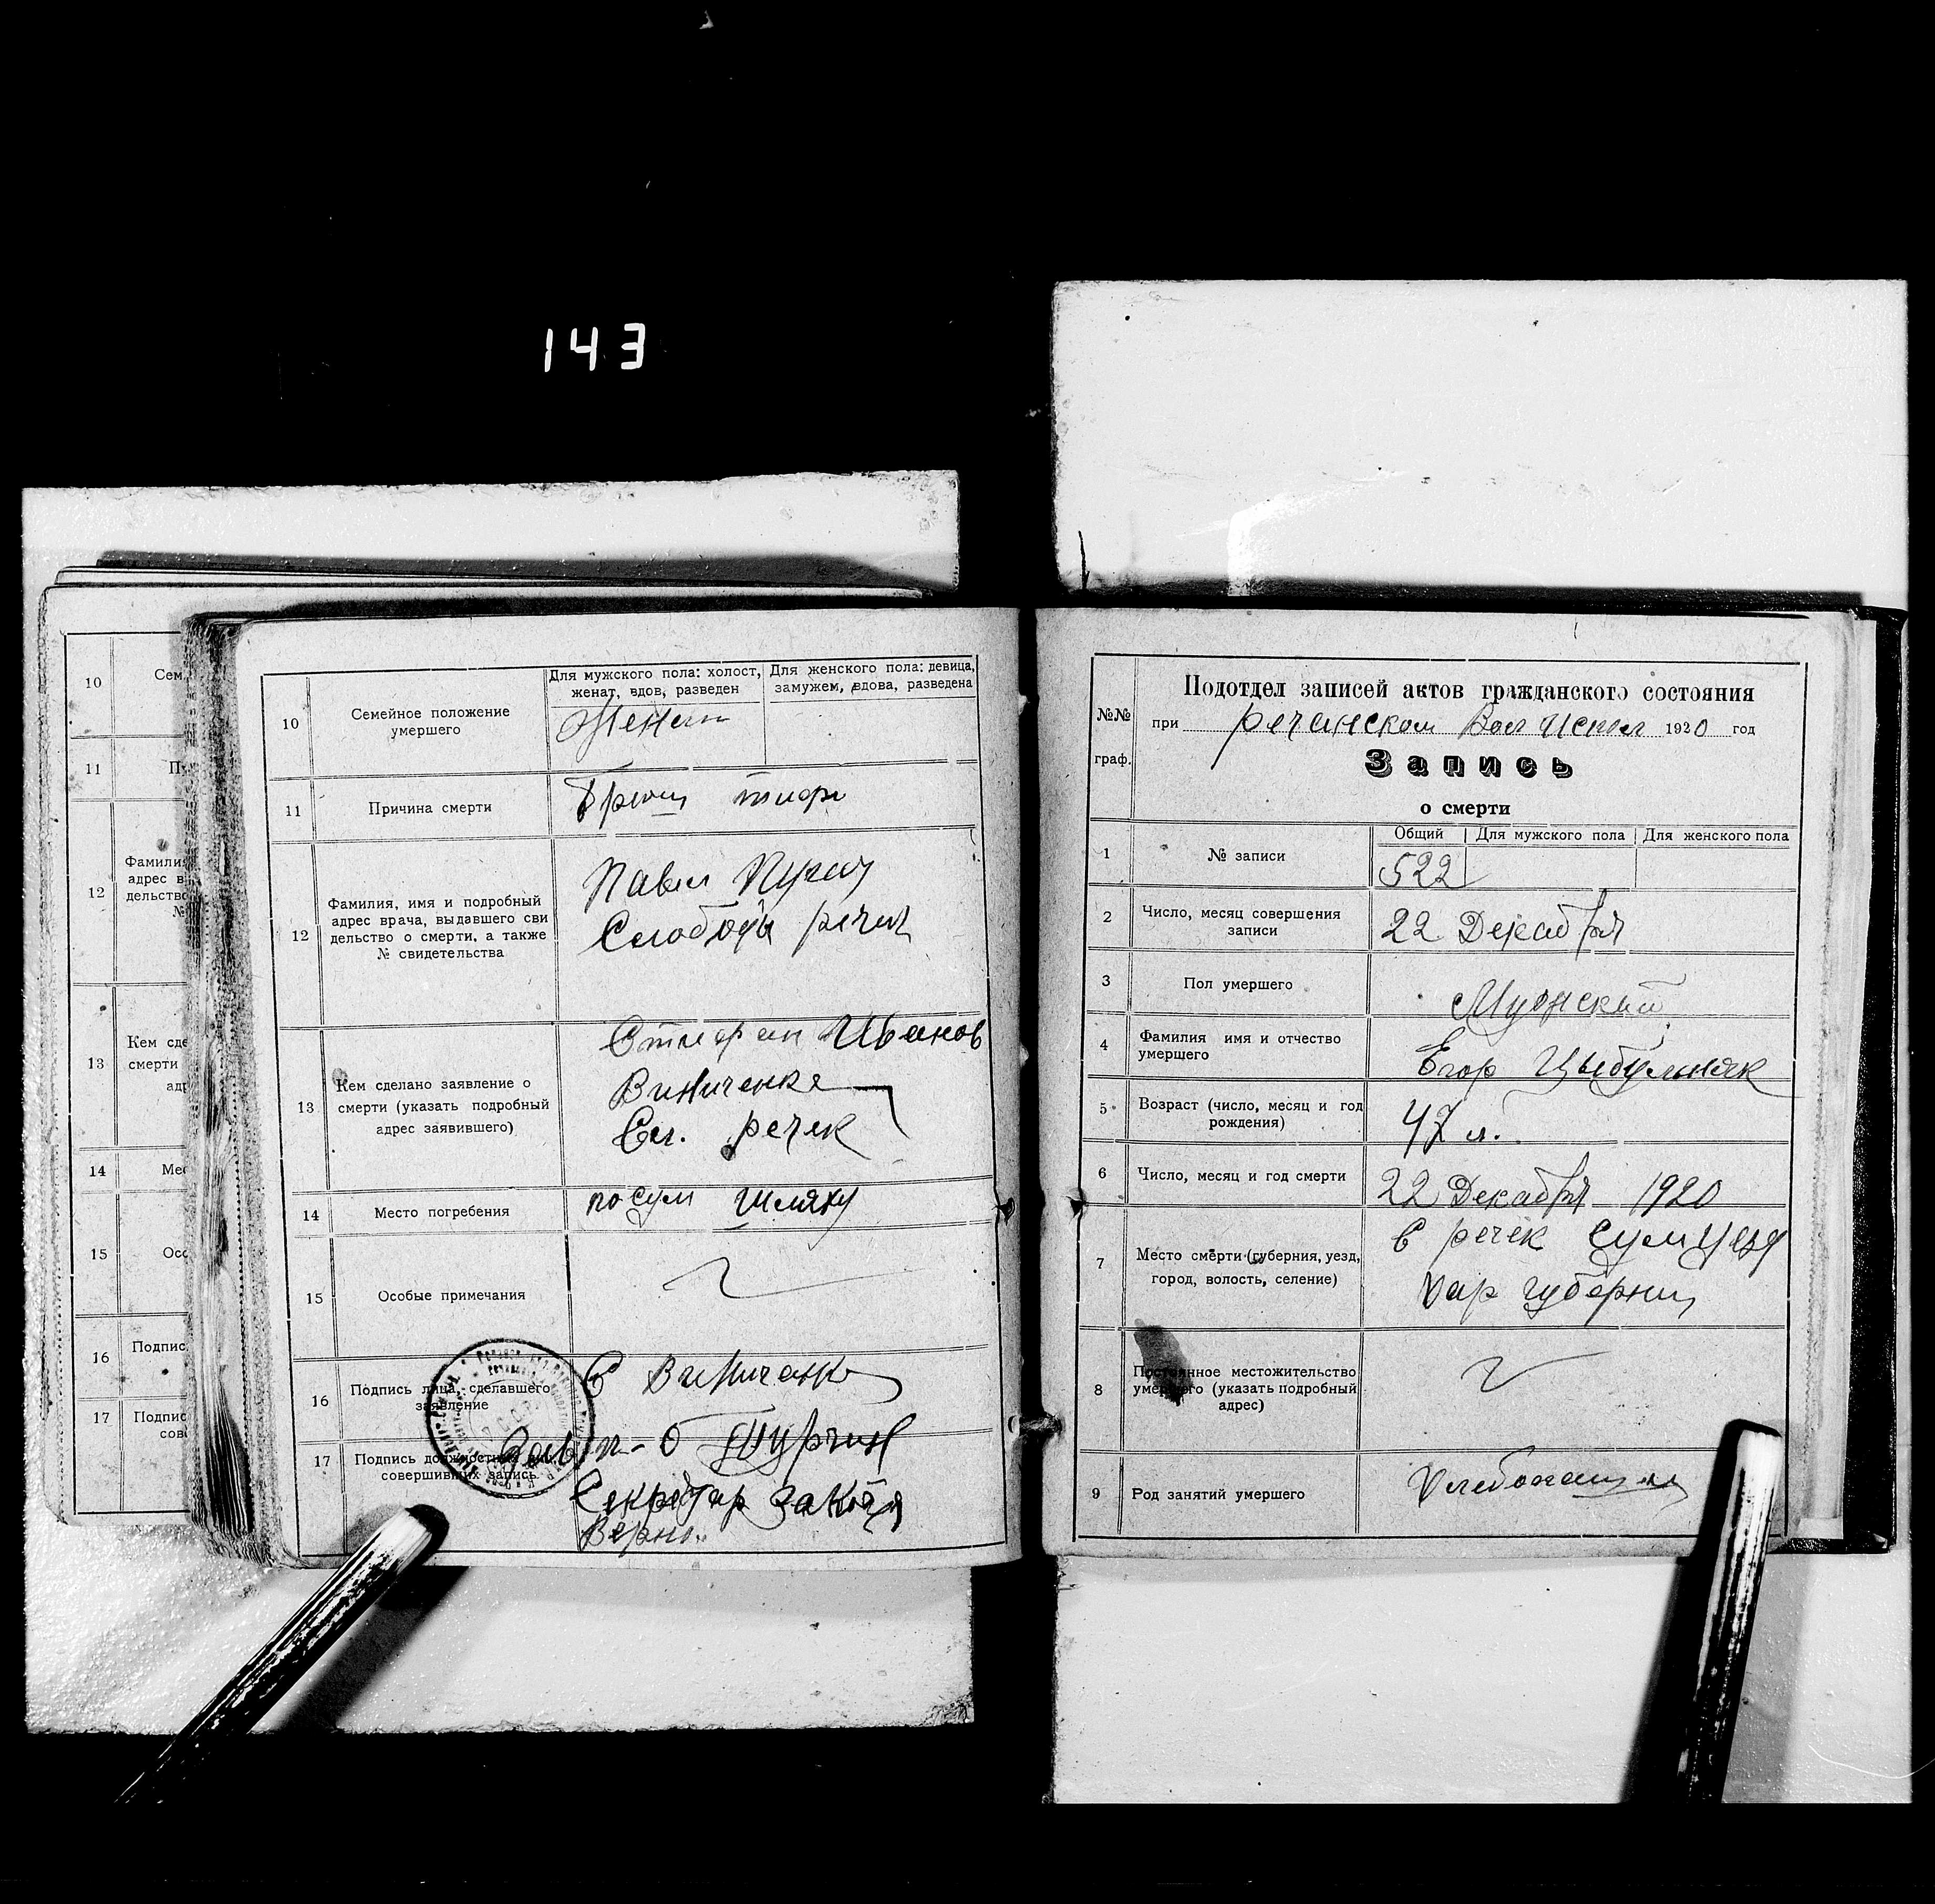 143
10
Сем
11
П
12
Фамили
адрес в
дельство
№
13
Кем сде
смерти
адр
14
Мес
15
Осо
16
Подпис
17
Подпис
сов
10
Семейное положение
умершего
Для мужского пола: холост,
женат, вдов, разведен
Для женского пола: девица,
замужем, вдова, разведена
Женат
11
Причина смерти
Брюш тиф
12
Фамилия, имя и подробный
адрес врача, выдавшего сви
дельство о смерти, а также
№ свидетельства
Павел
Слободы речек
13
Кем сделано заявление о
смерти (указать подробный
адрес заявившего)
Стефан Иванов
Виниченке
Сл. речек
14
Место погребения
по сум шляху
15
Особые примечания
16
Подпись лица, сделавшего
заявление
С Виниченко
17
Подпись должностных лиц
совершивших запись
Секретар
Верно.
№№
граф.
Подотдел записей актов гражданского состояния
при речанском Вол Испол 1920 год
Запись
о смерти
1
№ записи
Общий
Для мужского пола
Для женского пола
522
2
Число, месяц совершения
записи
22 Декабря
3
Пол умершего
Мужский
4
Фамилия имя и отчество
умершего
Егор Цыбульняк
5
Возраст (число, месяц и год
рождения)
47 л.
6
Число, месяц и год смерти
22 Декабря 1920
7
Место смерти (губерния, уезд,
город, волость, селение)
С речек Сум Уезд
Хар губерни
8
Постоянное местожительство
умершего (указать подробный
адрес)
9
Род занятий умершего
Хлебопашец